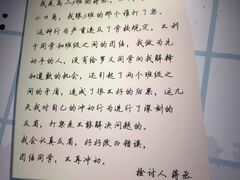 小口角,我跟2班的那个谁打了架。
这种行为严重违反了学校规定,不利
于同学和班级之间的团结,我作为先
动手的人,没有给罗义同学向我解释
和道歉的机会,还引起了两个班级之
间的矛盾,造成了很不好的后果,这几
天我对自己的冲动行为进行了深刻的
反省,打架是不能解决问题的。
我会认真反省,好好改正错误,
团结同学,不再冲动。
检讨人 蒋丞